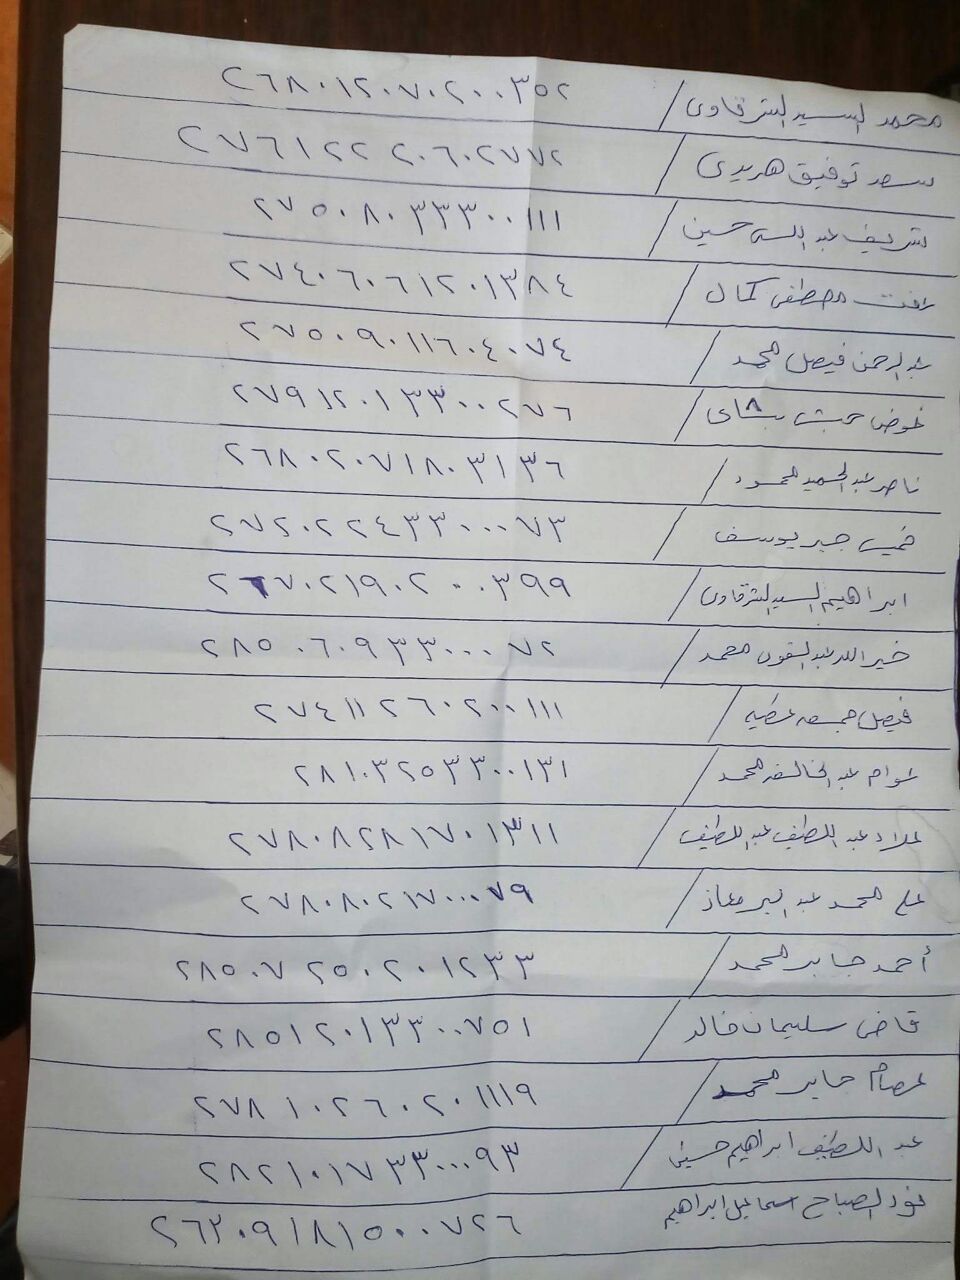 محمد السيد الشرقاوى / ٢٦٨٠١٢٠٧٠٢٠٠٣٥٢
سعد توفيق هريدى / ٢٧٦١٢٢٢٠٦٠٢٧٧٢
شريف عبد حسين / ٢٧٥٠٨٠٣٣٣٠٠١١١
رافت مصطفى كمال / ٢٧٤٠٦٠٦١٢٠١٣٨٤
عبد الرحمن فيصل محمد / ٢٧٥٠٩٠١١٦٠٤٠٧٤
عوض / ٢٧٩١٢٠١٣٣٠٠٢٧٦
ناصر عبد الحميد محمود / ٢٦٨٠٢٠٧١٨٠٣١٣٦
خميس جبر يوسف / ٢٧٢٠٢٢٤٣٣٠٠٠٧٣
ابراهيم السيد الشرقاوى / ٢٦٧٠٢١٩٠٢٠٠٣٩٩
خير الله محمد / ٢٨٥٠٦٠٩٣٣٠٠٠٧٢
فيصل جمعه عطيه / ٢٧٤١١٢٦٠٢٠٠١١١
عوام محمد / ٢٨١٠٣٢٥٣٣٠٠١٣١
علاء عبد اللطيف عبد اللطيف / ٢٧٨٠٨٢٨١٧٠١٣١١
على محمد عبد البر معاذ / ٢٧٨٠٨٠٢١٧٠٠٠٧٩
أحمد جابر محمد / ٢٨٥٠٧٢٥٠٢٠١٢٣٣
قاضى سليمان خالد / ٢٨٥١٢٠١٣٣٠٠٧٥١
عصام جابر محمد / ٢٧٨١٠٢٦٠٢٠١١١٩
عبد اللطيف ابراهيم حسين / ٢٨٢١٠١٧٣٣٠٠٠٩٣
نور الصباح اسماعيل ابراهيم ٢٦٢٠٩١٨١٥٠٠٧٢٦